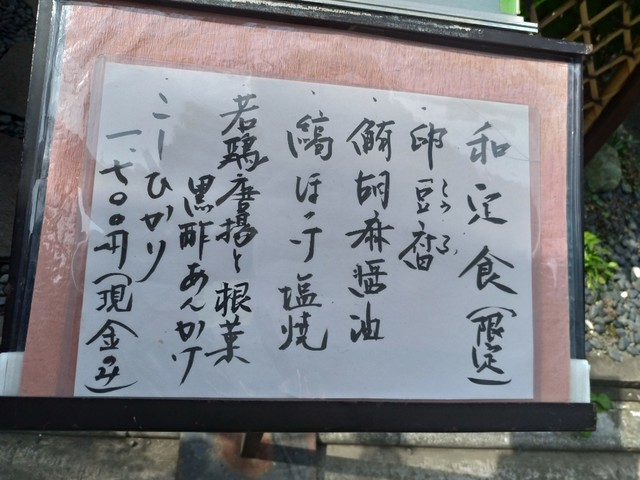 和定食(限定)
・卵豆腐
とうふ
・鮪胡麻醤油
・縞ほっけ塩焼
・若鶏唐揚と根菜
黒酢あんかけ
・こしひかり
一、七〇〇円(現金のみ)